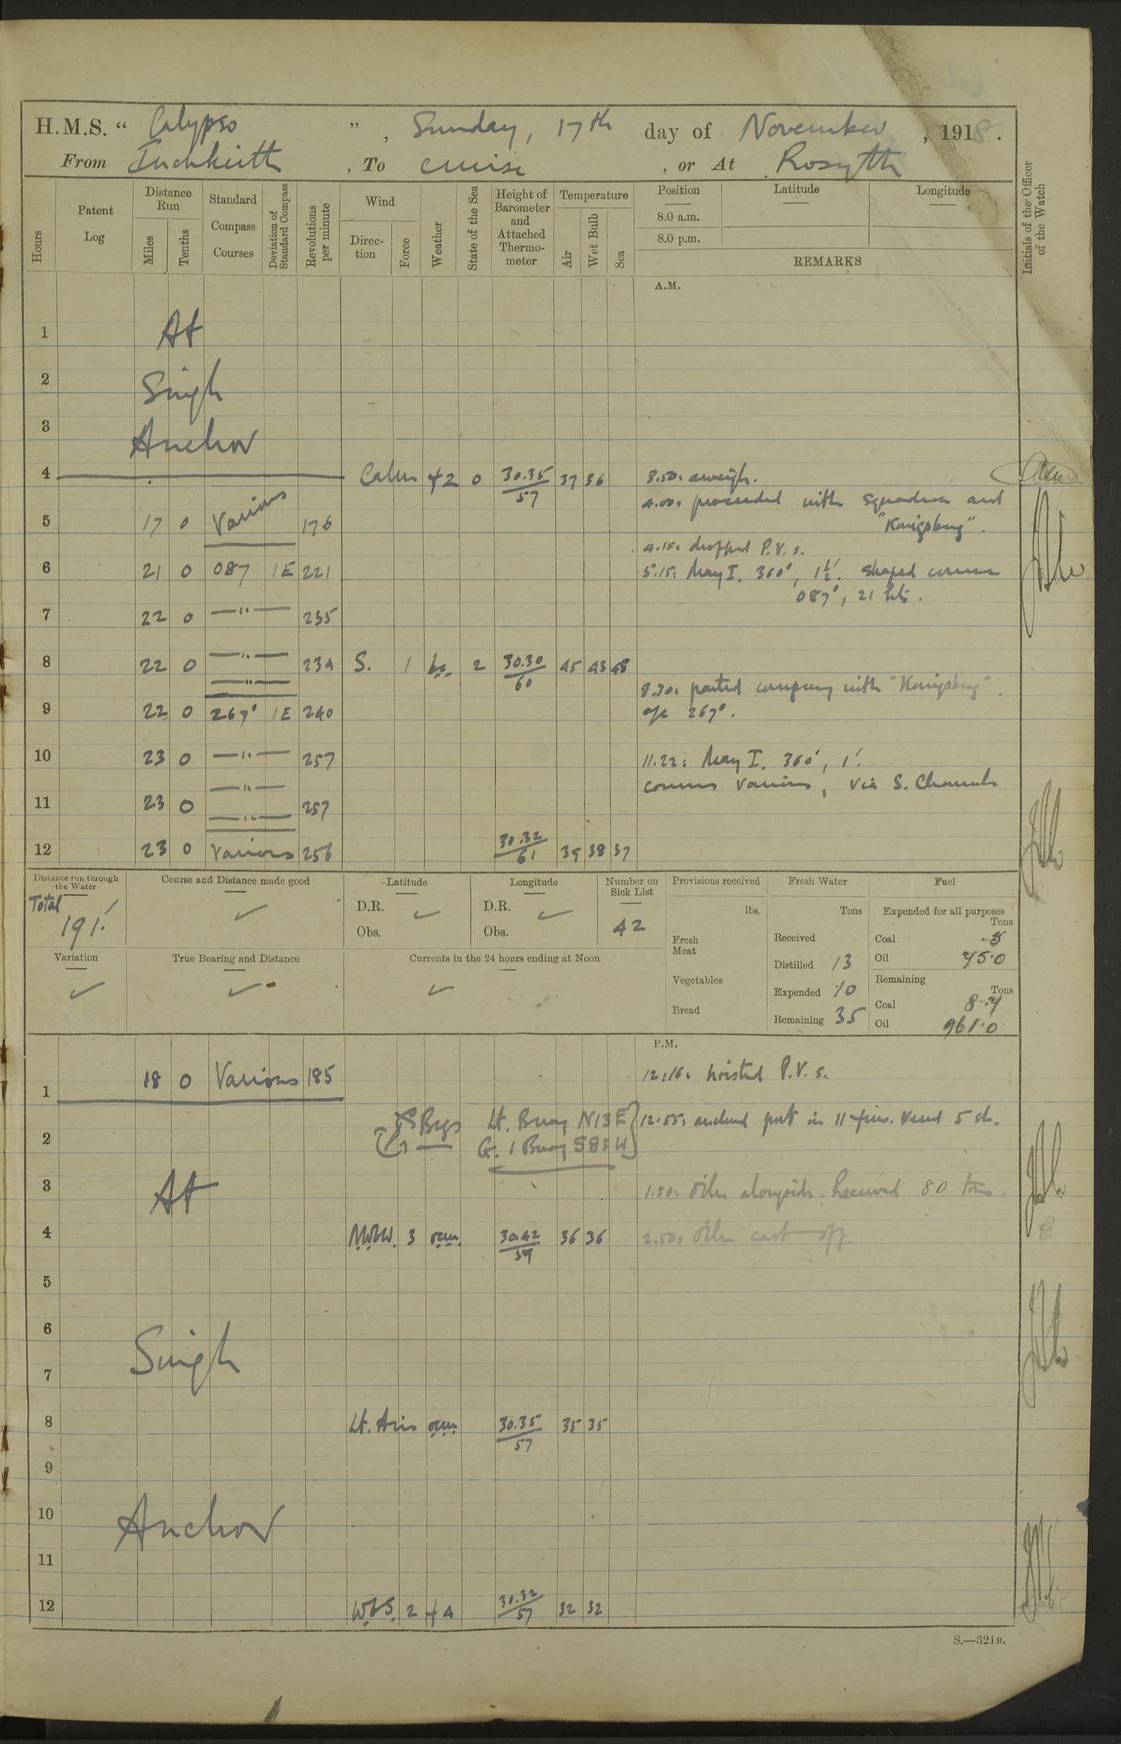 H.M.S. “ Calypso ” , Sunday, 17th day of November , 1918.
From Inchkeith , To cruise , or At Rosyth
Hours
Patent Log
Distance Run
Miles
Tenths
Standard Compass Courses
Deviation of Standard Compass
Revolutions per minute
Wind
Direction
Force
Weather
State of the Sea
Height of Barometer and Attached Thermometer
Temperature
Air
Wet Bulb
Sea
Position Latitude Longitude
8.0 a.m.
8.0 p.m.
REMARKS
Initials of the Officer of the Watch
A.M.
1 At
2 Singh
3 Anchor
4 Calm 2 0 30.35/57 37 36 3.50: aweigh.
4.00: proceeded with Squadron and
5 17 0 Various 176 "Königsberg".
4.15: dropped P.V.s.
6 21 0 087 1E 221 5.15: May I. 360°, 1½'. shaped course
087°, 21 kts.
7 22 0 —"— 235
8 22 0 —"— 234 S. 1 2 30.30/60 45 43 48
—"—
8.30: parted company with "Königsberg".
9 22 0 267° 1E 240 a/c 267°.
10 23 0 —"— 257 11.22: May I. 360°, 1'.
—"— courses various, via S. Channel
11 23 0 —"— 257
12 23 0 Various 256 30.32/61 39 38 37
Distance run through the Water
Total 191'
Course and Distance made good
Latitude
D.R.
Obs.
Longitude
D.R.
Obs.
Number on Sick List
42
Provisions received
lbs.
Fresh Meat
Vegetables
Bread
Fresh Water
Tons
Received
Distilled 13
Expended 10
Remaining 35
Fuel
Expended for all purposes
Tons
Coal .5
Oil 75.0
Remaining
Tons
Coal 8.4
Oil 961.0
Variation
True Bearing and Distance
Currents in the 24 hours ending at Noon
P.M.
1 18 0 Various 185 12.16: hoisted P.V.s.
Brgs Lt. Buoy N13E 12.55: anchored port in 11 fms. veered 5 sh.
2 G. 1 Buoy S83W
3 At 1.50: Oiler alongside. Received 80 tons.
4 N.W. 3 30.42/59 36 36 2.50: Oiler cast off.
5
6 Singh
7
8 Lt. Airs 30.35/57 35 35
9
10 Anchor
11
12 2 30.32/57 32 32
S.—321B.